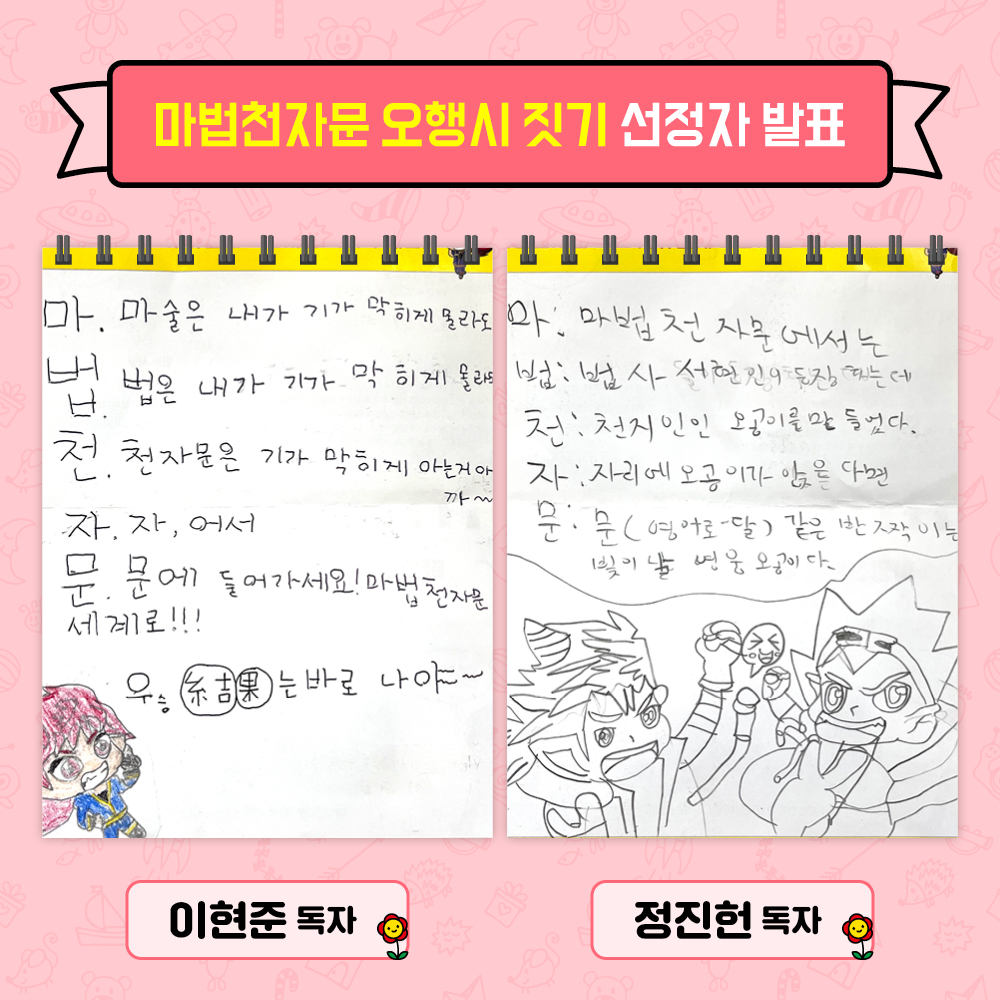 마법천자문 오행시 짓기 선정자 발표
마. 마술은 내가 기가 막히게 몰라도
법. 법은 내가 기가 막히게 몰라도
천. 천자문은 기가 막히게 아는거아
까~
자. 자, 어서
문. 문에 들어가세요! 마법천자문
세계로!!!
우승 結果는 바로 나야~~
마: 마법천자문에서는
법: 법사 등장 때는데
천: 천지인인 오공이를 만들었다.
자: 자리에 오공이가 앉은다면
문: 문(영어로-달) 같은 반짝이는
빛이 날 영웅 오공이다.
이현준 독자
정진헌 독자